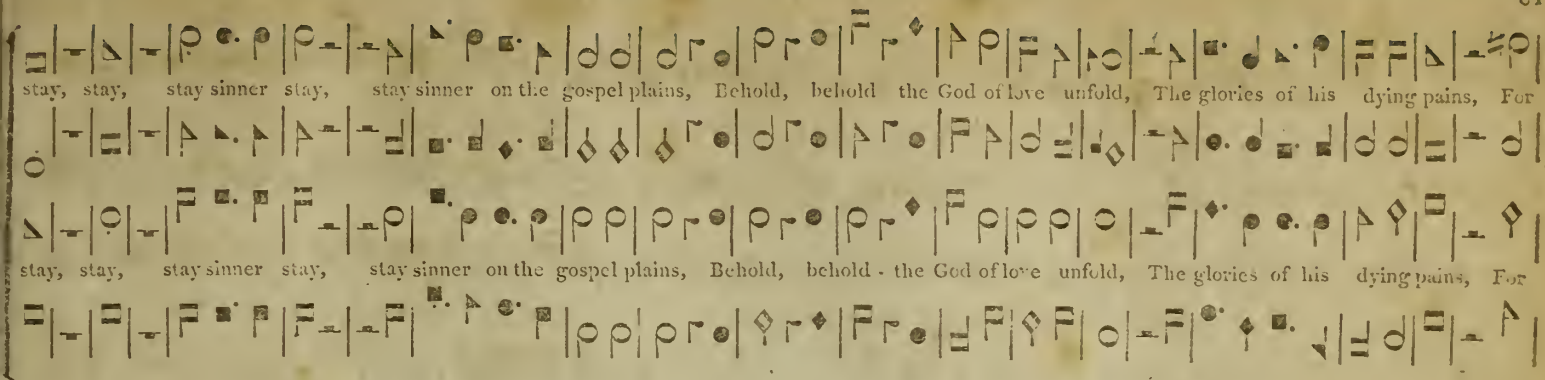 stay, stay, stay sinner stay, stay sinner on the gospel plains, Behold, behold the God of love unfold, The glories of his dying pains, For
stay, stay, stay sinner stay, stay sinner on the gospel plains, Behold, behold - the God of love unfold, The glories of his dying pains, For